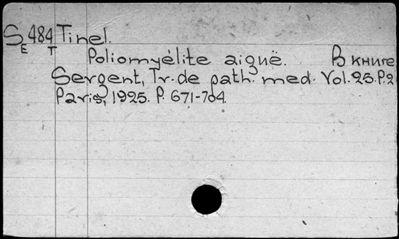 S 484 Tinel.
E T
Poliomyélite aiguë. В книге
Sergent, Tr. de path. med. Vol. 25. P. 2
Paris, 1925. P. 671-704.